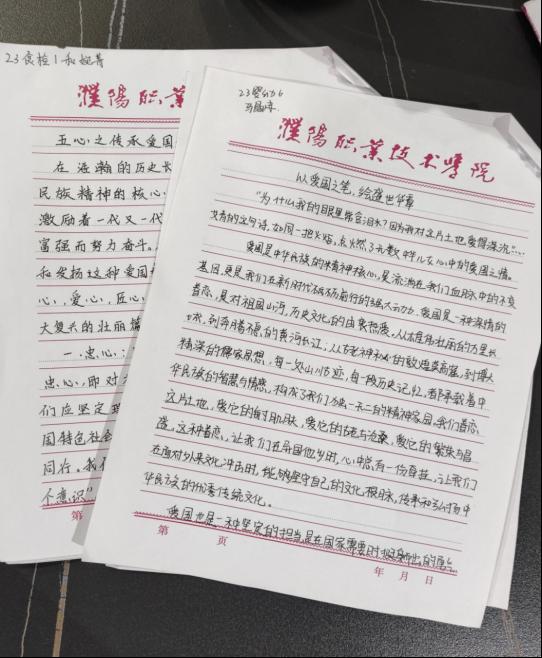 23食检1 和婉菁
濮阳职业
五心之传承爱国
在浩瀚的历史长
民族精神的核心
激励着一代又一代
富强而努力奋斗。
和发扬这种爱国
心,爱心,匠心
大复兴的壮丽篇
一.忠心:
忠心,即对
们应坚定理
国特色社会
同行。我们
个意识"
第
23婴幼6
濮阳职业技术学院
以爱国之笔,绘盛世华章
"为什么我的眼里常含泪水?因为我对这片土地爱得深沉"……
艾青的这句诗,如同一把火焰,点燃了无数中华儿女心中的爱国之情。
爱国是中华民族的精神核心,是流淌在我们血脉中的不变
基因,更是我们在新时代砥砺前行的强大动力。爱国是一种深情的
眷恋,是对祖国山河,历史文化的由衷热爱。从雄伟壮丽的万里长
城,到奔腾不息的黄河长江;从古老神秘的敦煌莫高窟,到博大
精深的儒家思想,每一处山川古迹,每一段历史记忆,都承载着中
华民族的智慧与情感,构成了我们独一无二的精神家园。我们眷恋
这片土地,爱它的每寸肌肤,爱它的古老与沧桑,爱它的繁荣与昌
盛。这种眷恋,让我们在异国他乡时,心中总有一份牵挂,让我们
在面对外来文化冲击时,能够坚守自己的文化根脉,传承和弘扬中
华民族的优秀传统文化。
爱国也是一种坚定的担当,是在国家需要时挺身而出的勇气
第 页
年 月 日